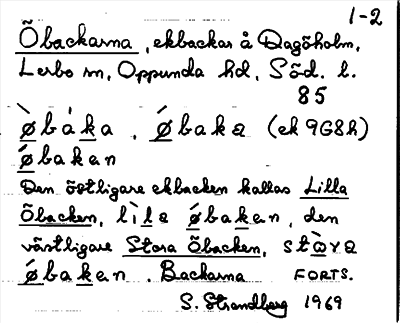 1-2
Õbackarna, ekbackar å Dagöholm,
Lerbo sn, Oppunda hd, Söd. l.
85
Ø̀báka, Ǿbaka (ek 9G8h)
Ǿbakan
Den östligare ekbacken kallas Lilla
Õbacken, lìla Ǿbakan, den
västligare Stora Õbacken, stàra
Ǿbakan. Backarna FORTS.
S. Strandberg 1969